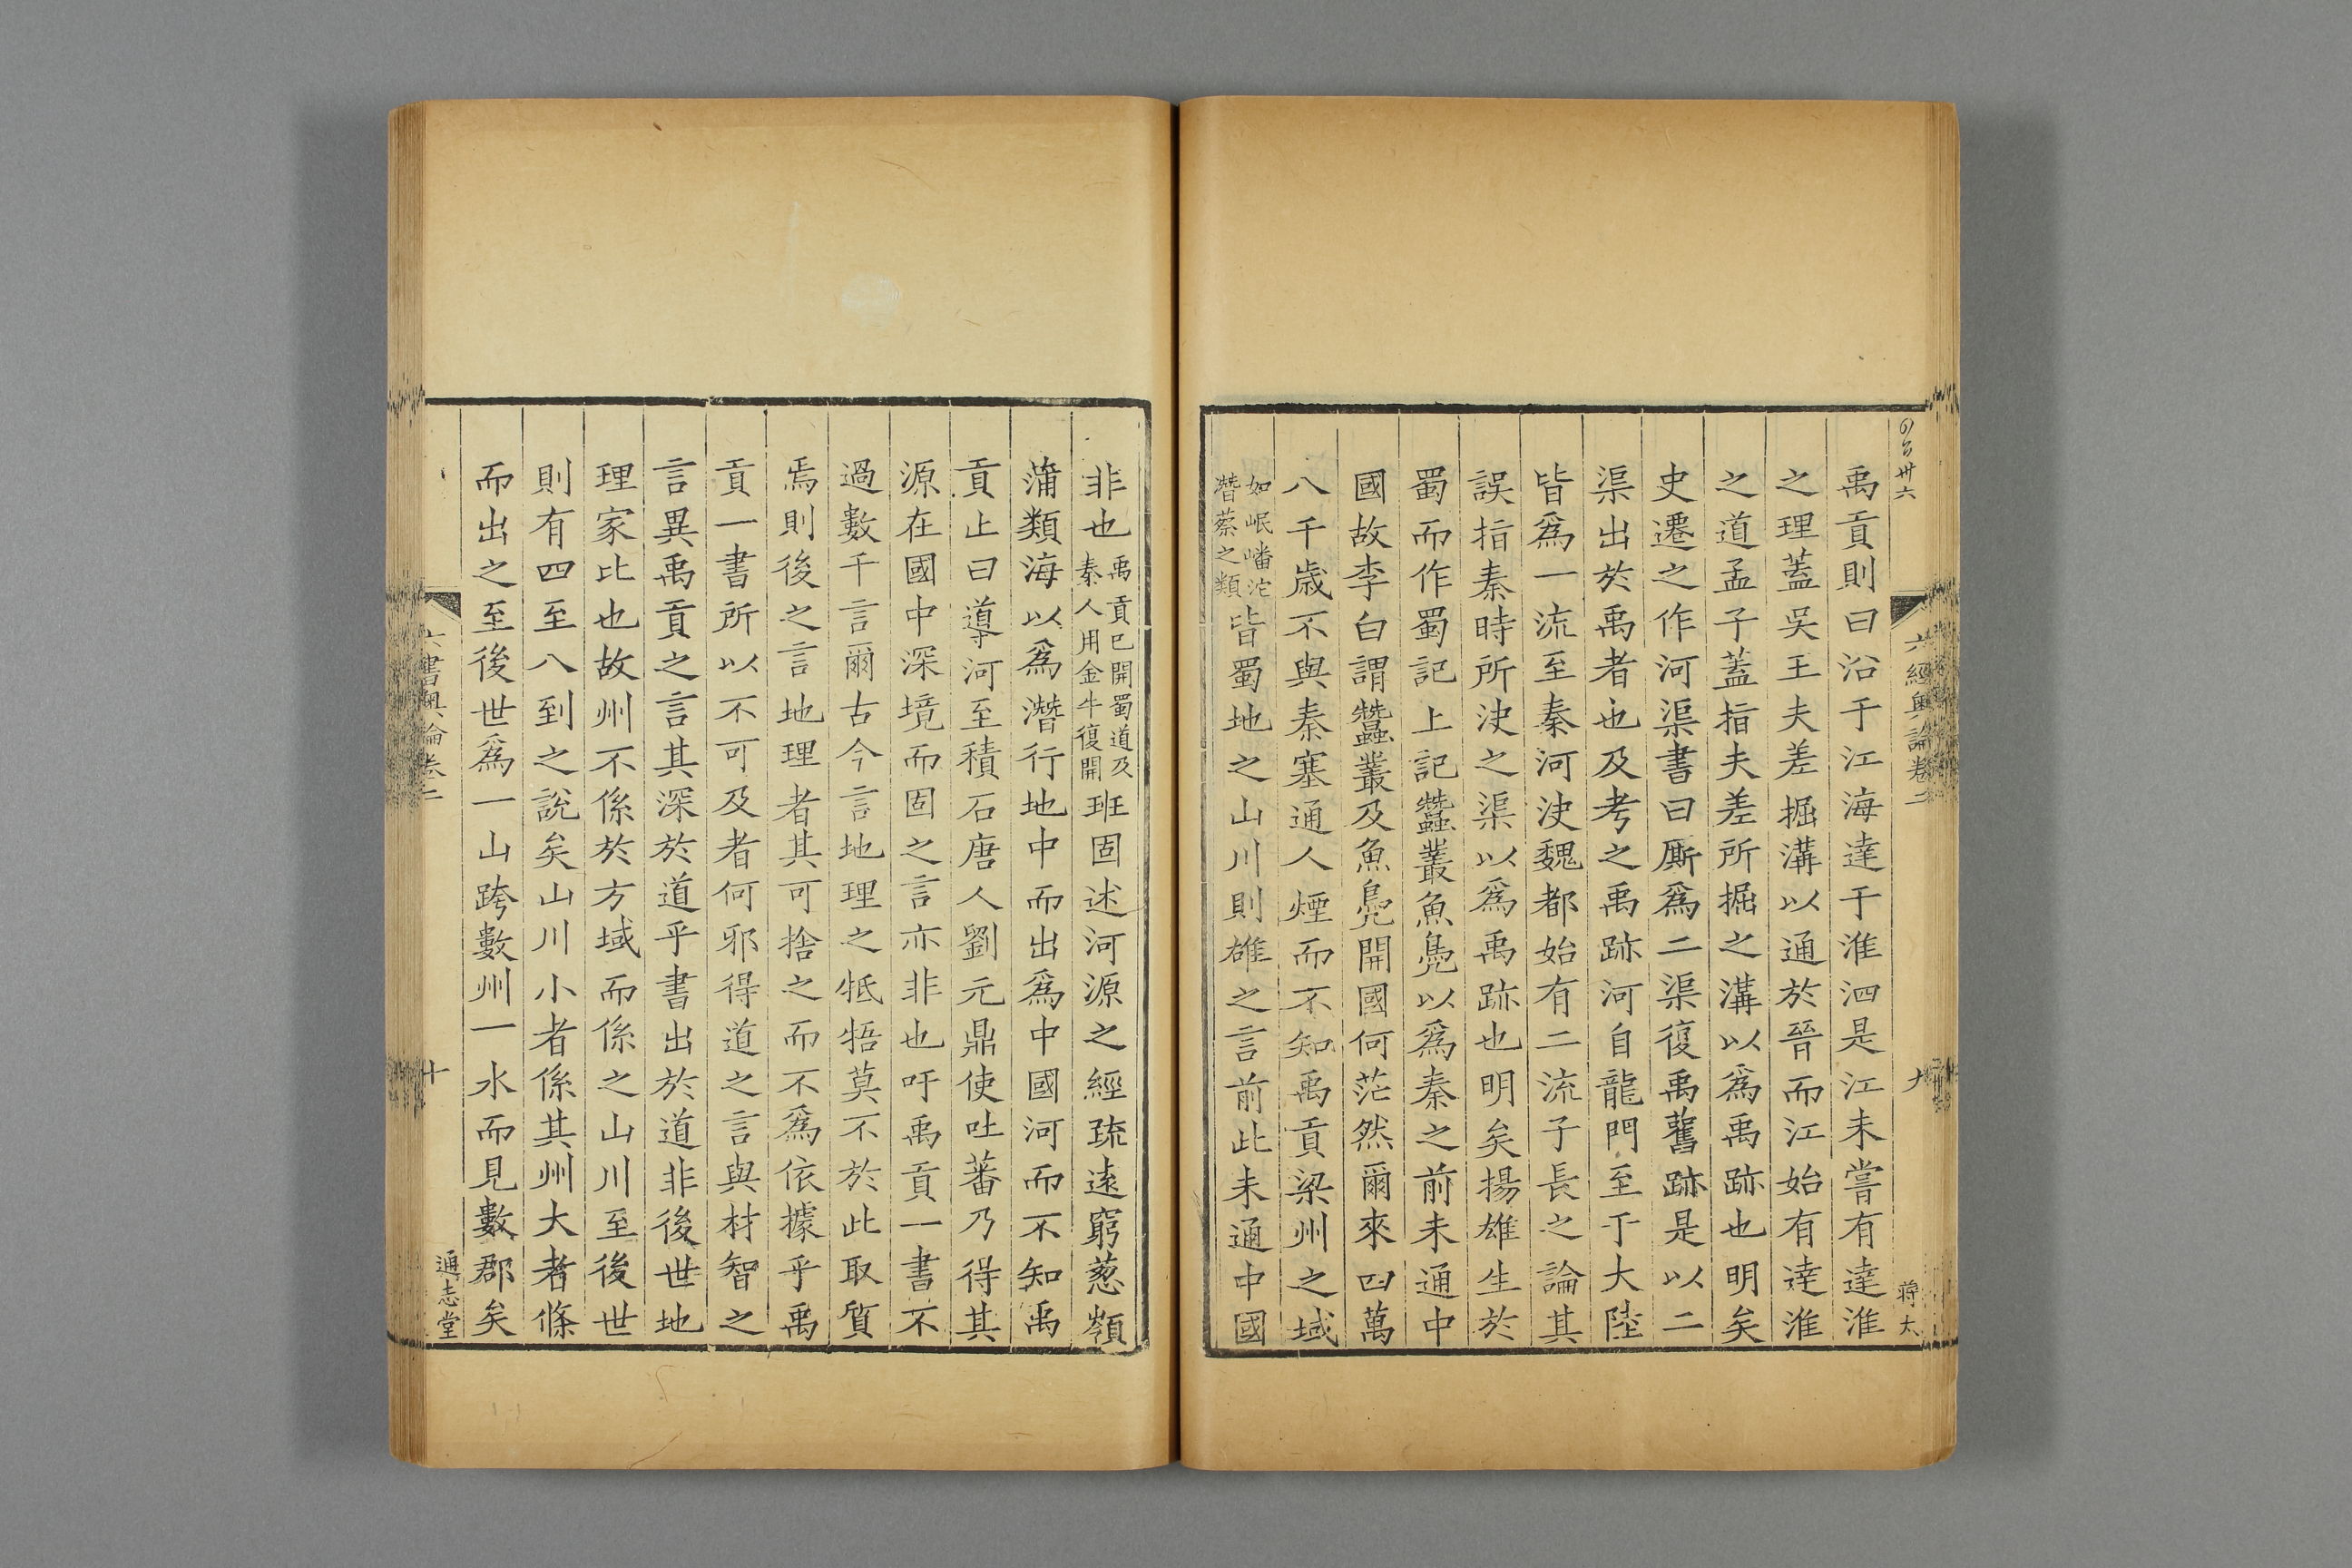 六經奥論卷二
九
蔣太
禹貢則曰沿于江海達于淮泗是江未嘗有達淮
之理蓋吳王夫差掘溝以通於晉而江始有達淮
之道孟子蓋指夫差所掘之溝以爲禹跡也明矣
史遷之作河渠書曰厮爲二渠復禹舊跡是以二
渠出於禹者也及考之禹跡河自龍門至于大陸
皆爲一流至秦河決魏都始有二流子長之論其
誤指秦時所決之渠以爲禹跡也明矣揚雄生於
蜀而作蜀記上記蠶叢魚鳧以爲秦之前未通中
國故李白謂蠶叢及魚鳧開國何茫然爾來四萬
八千歲不與秦塞通人煙而不知禹貢梁州之域
如岷嶓沱
濳蔡之類
皆蜀地之山川則雄之言前此未通中國
非也
禹貢已開蜀道及
秦人用金牛復開
班固述河源之經䟽遠窮葱嶺
蒲類海以爲濳行地中而出爲中國河而不知禹
貢止曰導河至積石唐人劉元鼎使吐蕃乃得其
源在國中深境而固之言亦非也吁禹貢一書不
過數千言爾古今言地理之牴牾莫不於此取質
焉則後之言地理者其可捨之而不爲依據乎禹
貢一書所以不可及者何邪得道之言與材智之
言異禹貢之言其深於道乎書出於道非後世地
理家比也故州不係於方域而係之山川至後世
則有四至八到之說矣山川小者係其州大者條
而出之至後世爲一山跨數州一水而見數郡矣
六書奥論卷二
十
通志堂